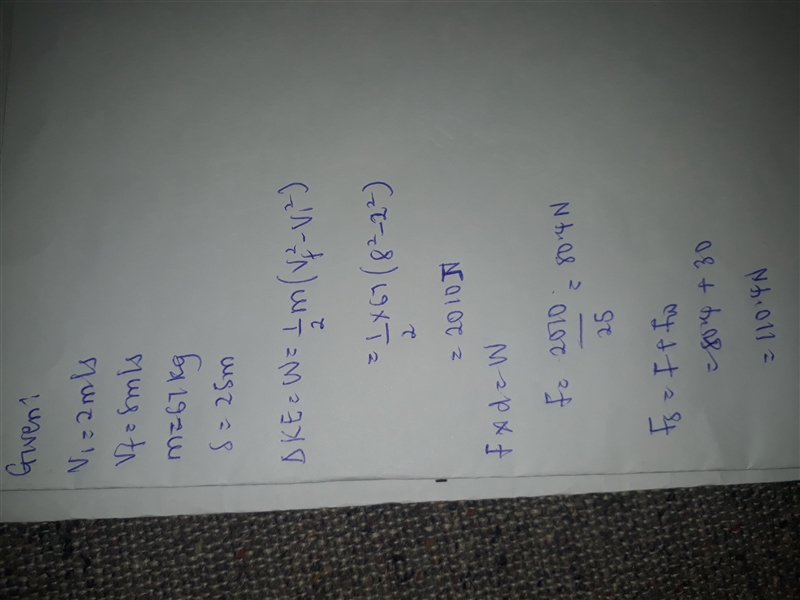 Given:
V₁ = 2m/s
Vf = 8m/s
m = 67kg
S = 25m
ΔKE = W = 1/2 m (Vf² - V₁²)
= 1/2 × 67 (8² - 2²)
= 2010 J
F × d = W
F = 2010/25 = 80.4N
Fs = F + Fw
= 80.4 + 30
= 110.4N